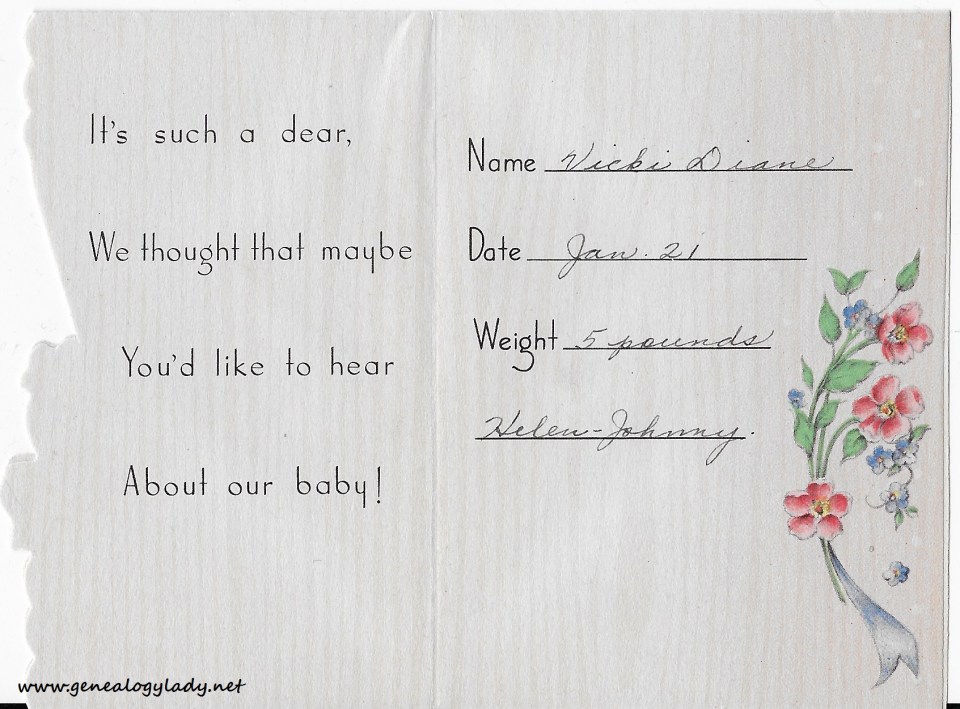 It's such a dear,
We thought that maybe
You'd like to hear
About our baby!
Name Vicki Diane
Date Jan. 21
Weight 5 pounds
Helen-Johnny.
www.genealogylady.net